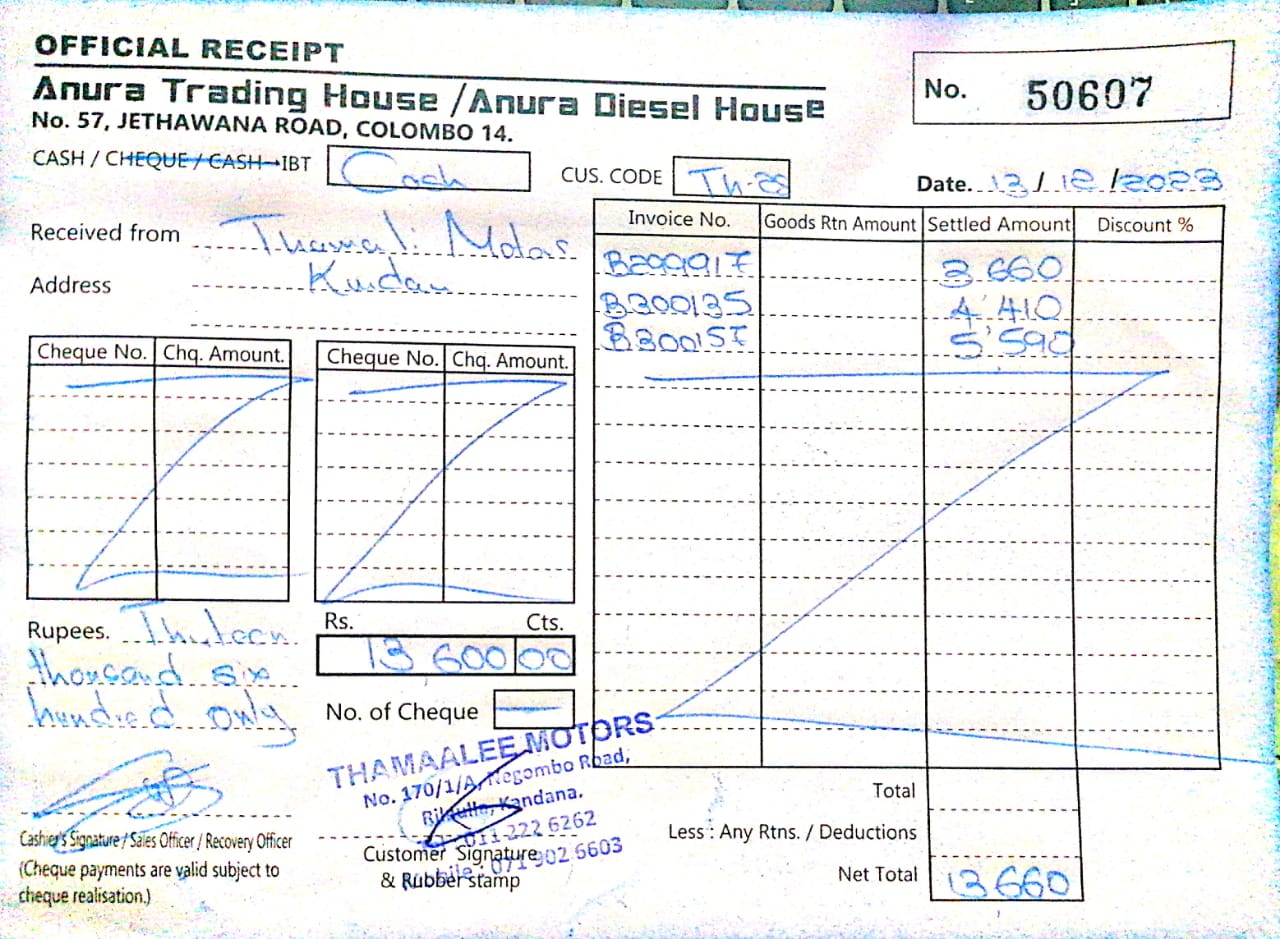 OFFICIAL RECEIPT
Anura Trading House / Anura Diesel House
No. 57, JETHAWANA ROAD, COLOMBO 14.
No. 50607
CASH / CHEQUE / CASH IBT Cash
CUS. CODE Th-28
Date. 13 / 12 / 2023
Received from Thamali Motors
Address Kandana
Invoice No. Goods Rtn Amount Settled Amount Discount %
B299917 3 660
B300135 4 410
B300157 5 590
Cheque No. Chq. Amount. Cheque No. Chq. Amount.
Rupees. Thirteen
thousand six
hundred only
Rs. Cts.
13 600 00
No. of Cheque
THAMAALEE MOTORS
No. 170/1/A, Negombo Road,
Kandana.
011 222 6262
Mobile : 071 902 6603
Cashier's Signature / Sales Officer / Recovery Officer
(Cheque payments are valid subject to
cheque realisation.)
Customer Signature
& Rubber stamp
Total
Less : Any Rtns. / Deductions
Net Total 13 660